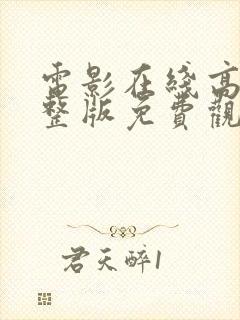 電影在綫高
整版免費觀
君天醉1